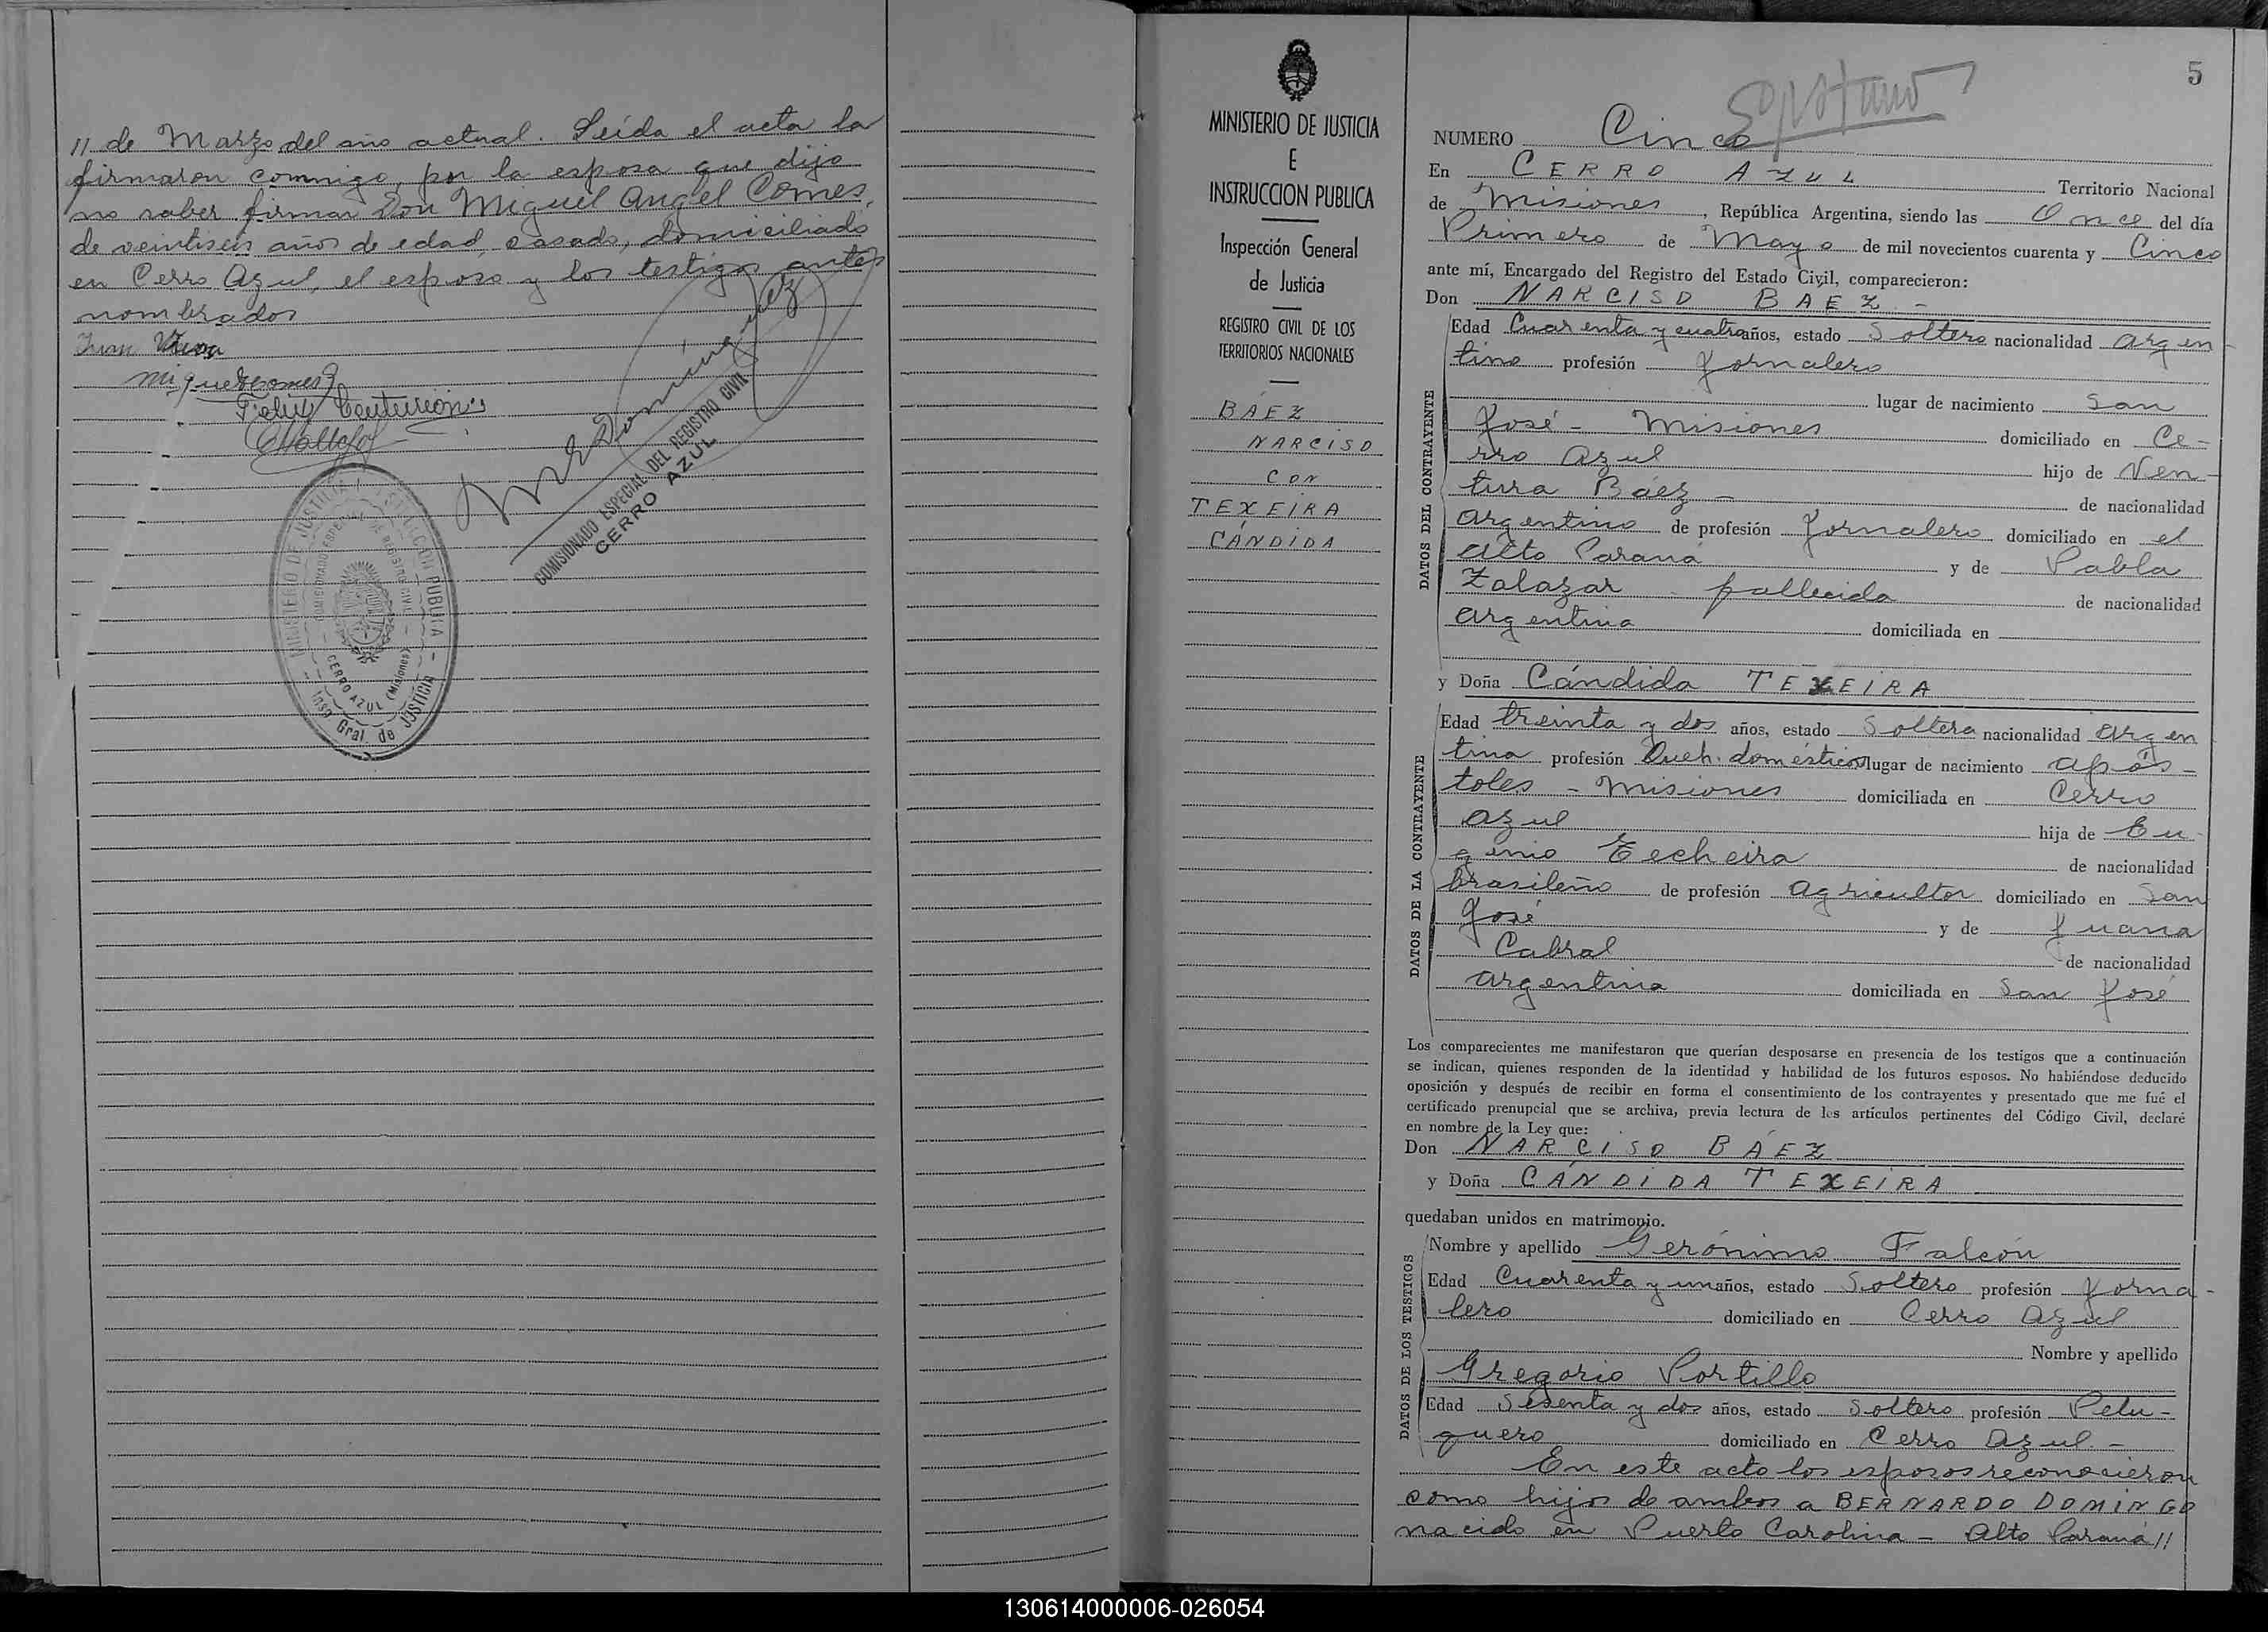 11 de Marzo del año actual. Leída el acta la
firmaron conmigo, por la esposa que dijo
no saber firmar Don Miguel Angel Comes,
de veintiseis años de edad, casado, domiciliado
en Cerro Azul, el esposo y los testigos antes
nombrados
Juan
COMISIONADO ESPECIAL DEL REGISTRO CIVIL
CERRO AZUL
MINISTERIO DE JUSTICIA E INSTRUCCION PUBLICA
Insp. Gral. de JUSTICIA
CERRO AZUL (Misiones)
MINISTERIO DE JUSTICIA
E
INSTRUCCION PUBLICA
Inspección General
de Justicia
REGISTRO CIVIL DE LOS
TERRITORIOS NACIONALES
BÁEZ
NARCISO
CON
TEXEIRA
CÁNDIDA
5
NUMERO Cinco
En CERRO AZUL Territorio Nacional
de Misiones, República Argentina, siendo las Once del día
Primero de Mayo de mil novecientos cuarenta y Cinco
ante mí, Encargado del Registro del Estado Civil, comparecieron:
Don NARCISO BAEZ -
DATOS DEL CONTRAYENTE
Edad Cuarenta y cuatro años, estado Soltero nacionalidad argen-
tino profesión Jornalero
lugar de nacimiento San
José - Misiones domiciliado en Ce-
rro Azul hijo de Ven-
tura Báez - de nacionalidad
argentino de profesión Jornalero domiciliado en el
alto Paraná y de Pabla
Zalazar - fallecida de nacionalidad
argentina domiciliada en
y Doña Cándida TEXEIRA
DATOS DE LA CONTRAYENTE
Edad treinta y dos años, estado Soltera nacionalidad argen
tina profesión Queh. domésticos lugar de nacimiento apos-
toles - Misiones domiciliada en Cerro
azul hija de Eu-
genio Techeira de nacionalidad
brasileño de profesión agricultor domiciliado en San
José y de Juana
Cabral de nacionalidad
argentina domiciliada en San José
Los comparecientes me manifestaron que querían desposarse en presencia de los testigos que a continuación
se indican, quienes responden de la identidad y habilidad de los futuros esposos. No habiéndose deducido
oposición y después de recibir en forma el consentimiento de los contrayentes y presentado que me fué el
certificado prenupcial que se archiva, previa lectura de los artículos pertinentes del Código Civil, declaré
en nombre de la Ley que:
Don NARCISO BÁEZ
y Doña CÁNDIDA TEXEIRA
quedaban unidos en matrimonio.
DATOS DE LOS TESTIGOS
Nombre y apellido Gerónimo Falcón
Edad Cuarenta y un años, estado Soltero profesión Jorna-
lero domiciliado en Cerro Azul
Nombre y apellido
Gregorio Portillo
Edad Sesenta y dos años, estado Soltero profesión Pelu-
quero domiciliado en Cerro Azul -
En este acto los esposos reconocieron
como hijos de ambos a BERNARDO DOMINGO
nacido en Puerto Carolina - Alto Paraná //
130614000006-026054